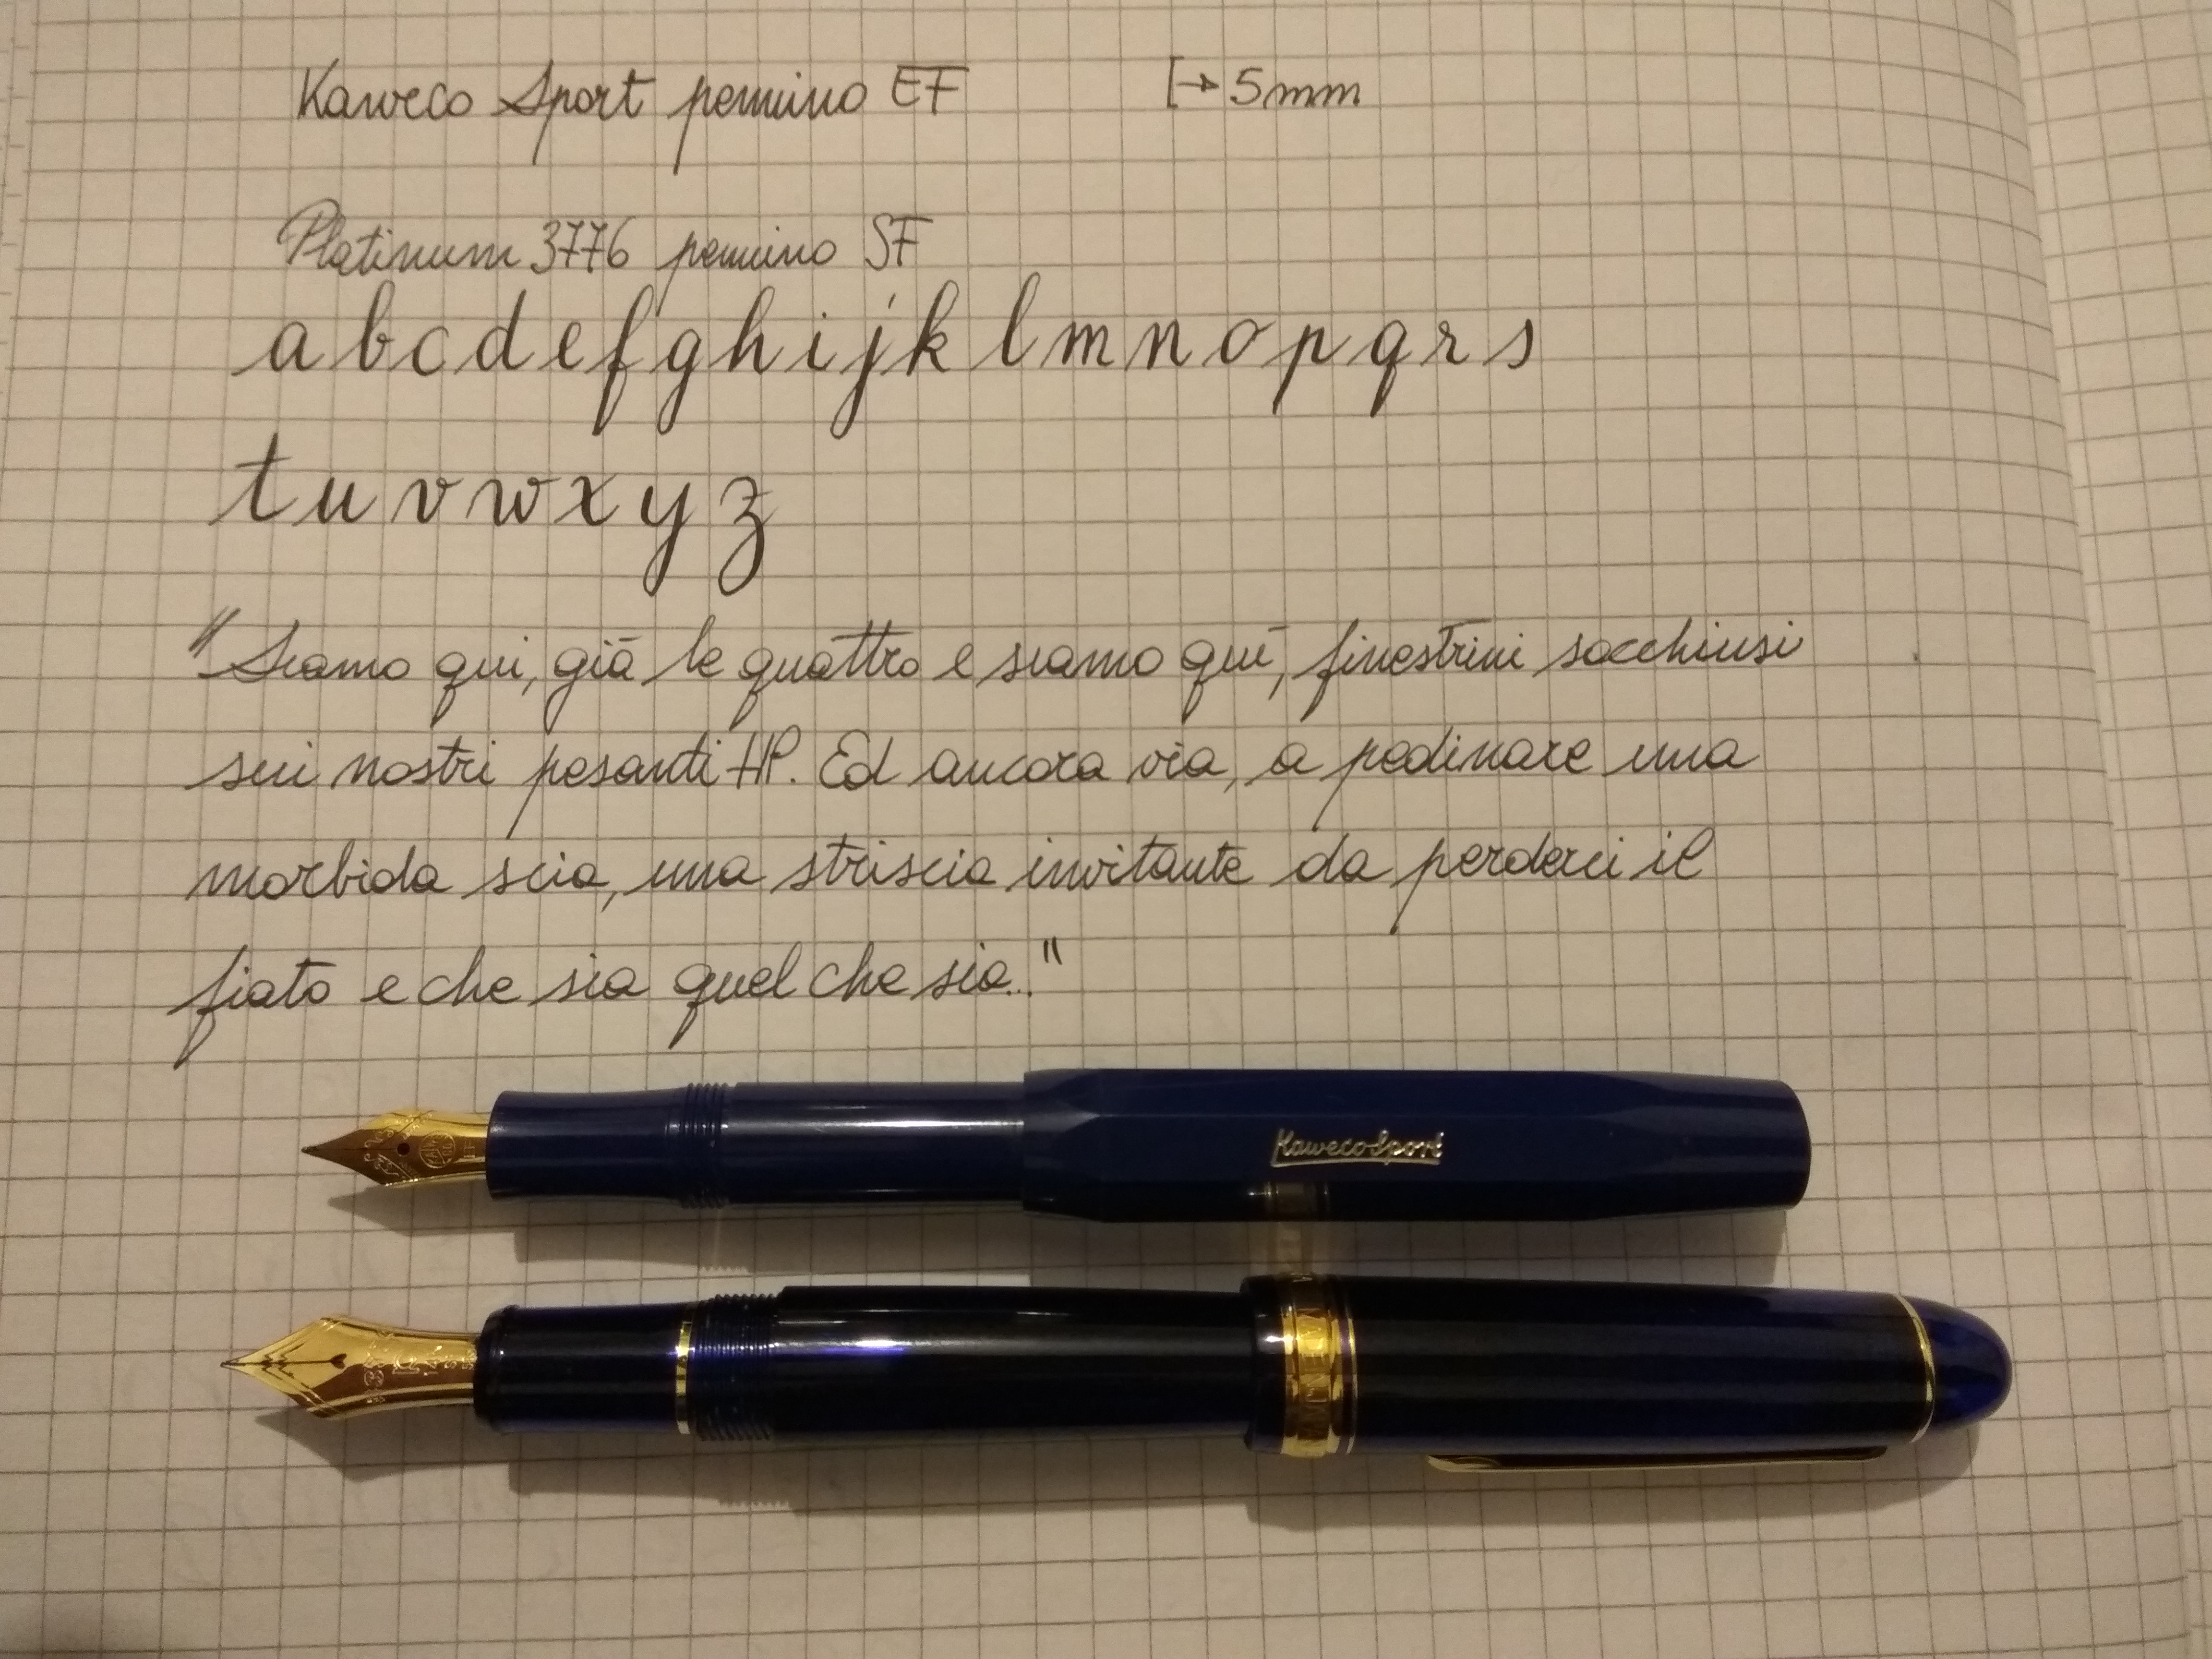 Kaweco Sport pennino EF [→ 5mm
Platinum 3776 pennino SF
a b c d e f g h i j k l m n o p q r s
t u v w x y z
"Siamo qui, già le quattro e siamo qui, finestrini socchiusi
sui nostri pesanti HP. Ed ancora via, a pedinare una
morbida scia, una striscia invitante da perderci il
fiato e che sia quel che sia..."
KawecoSport